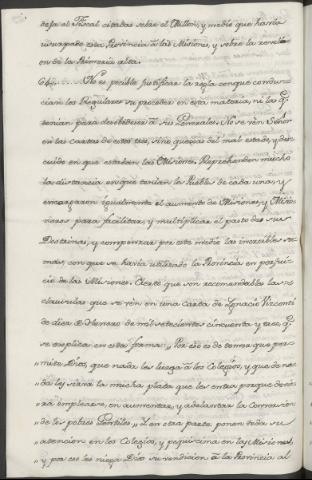 dexa al Fiscal citadas sobre el Millon, y medio que havia
usurpado esta Provincia à las Misiones, y sobre la rendicion
on de la Pimeria alta.
64. No es posible justificar la regla con que conducian
cian los Regulares su proceder en esta materia, ni las q.
tenian para desobedecer à sus Generales. No se ven Señor
en las cartas de estos tres, sino quejas del mal estado, y des
cuido en que estaban las Misiones. Reprehenden mucho
la distancia en que tenian los Pueblos de cada una, y
encargaron igualmente el aumento de Misiones, y Misio
neros para facilitar, y multiplicar el pasto de sus
Doctrinas, y compensar por este medio las increibles su
mas, con que se havia utilizado la Provincia en perjui
cio de las Misiones. Acaso que son recomendables las
clausulas que se ven en una Carta de Ignacio Visconti
de diez de Henero de mil setecientos cinquenta y tres, q.
se explica en esta forma: Por eso es de temer que per
mita Dios, que nada les luzga à los Colegios, y que de na
da les sirva la mucha plata que les entra porque
emplearse, en aumentar, y adelantar la Conversion
de los pobres Gentiles „ Y en otra parte ponen toda su
atencion en los Colegios, y poquisima en las Misiones,
y por eso les niega Dios su vendicion à la Provincia al